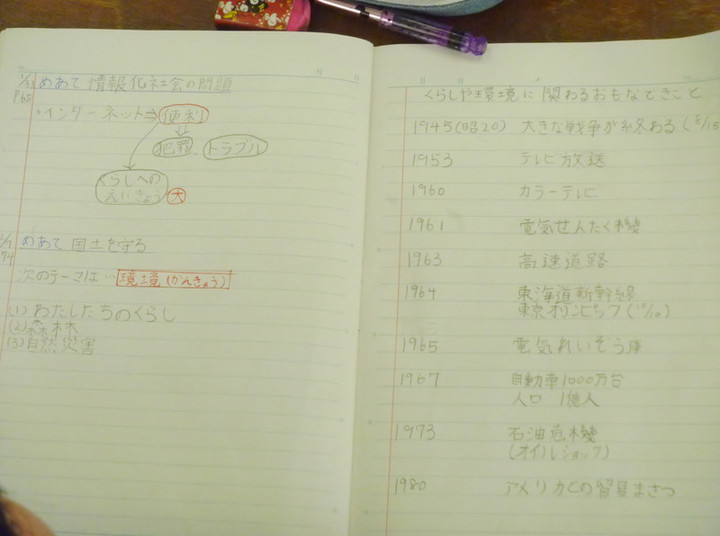 1/
めあて 情報化社会の問題
P65
・インターネット⇒便利
⇓
犯罪、トラブル
くらしへの
えいきょう 大
2/1 めあて 国土を守る
74
次のテーマは…環境(かんきょう)
(1) わたしたちのくらし
(2) 森林
(3) 自然災害
くらしや環境に関わるおもなできごと
1945(昭20) 大きな戦争が終わる(8/15
1953 テレビ放送
1960 カラーテレビ
1961 電気せんたく機
1963 高速道路
1964 東海道新幹線
東京オリンピック(10/10)
1965 電気れいぞう庫
1967 自動車1000万台
人口 1億人
1973 石油危機
(オイルショック)
1980 アメリカとの貿易まさつ